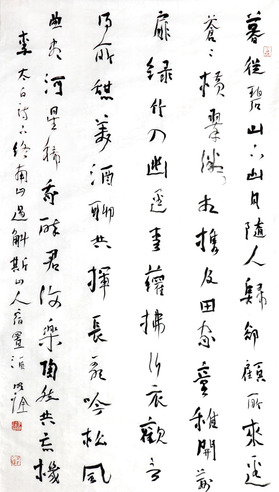 暮從碧山下山月隨人歸卻顧所來逕
蒼々橫翠微相攜及田家童稚開荊
扉綠竹入幽逕青蘿拂行衣歡言
得所憩美酒聊共揮長歌吟松風
曲盡河星稀我醉君復樂陶然共忘機
李太白詩下終南山過斛斯山人宿置酒